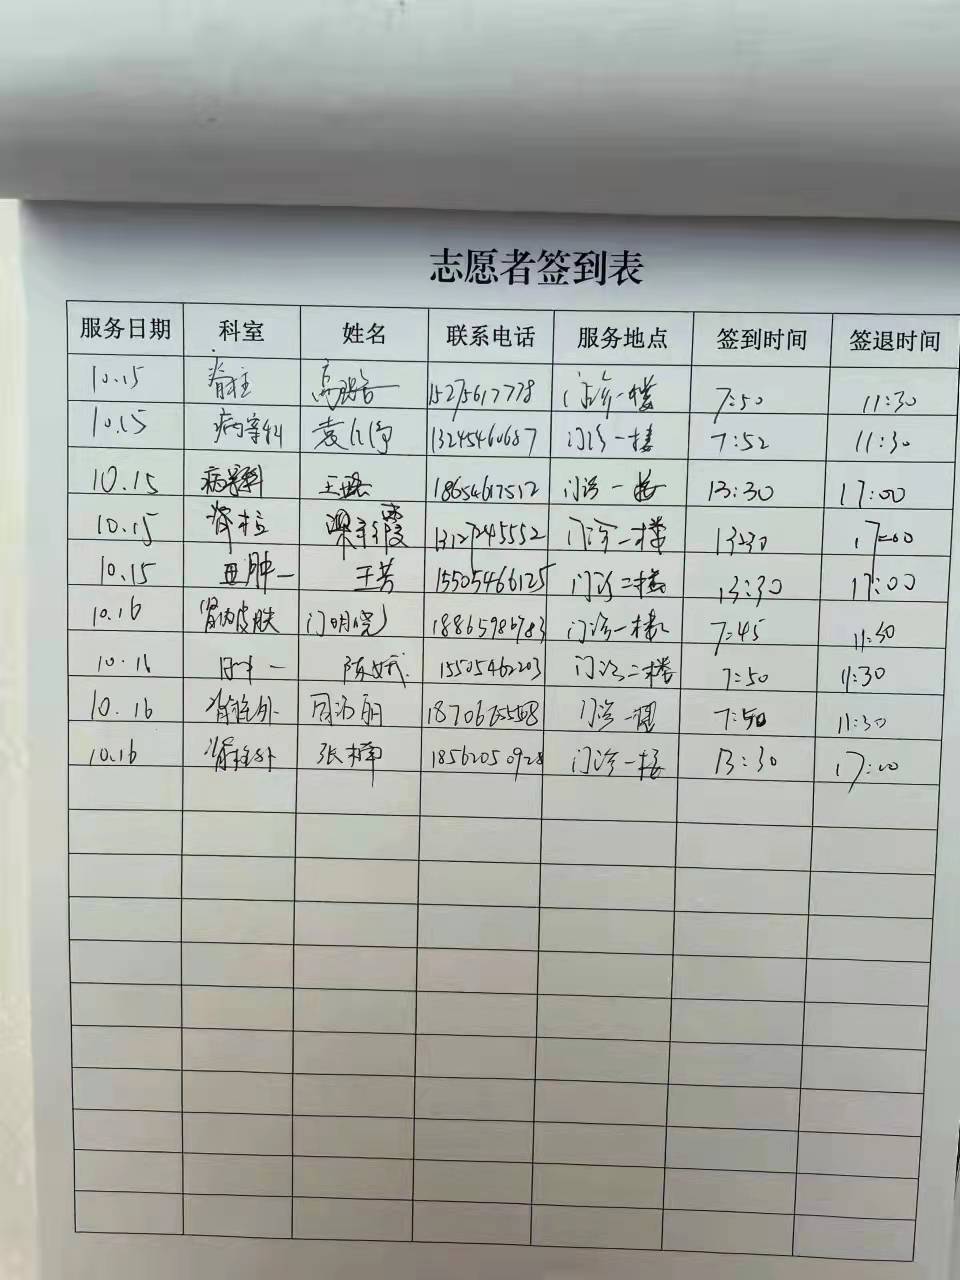 志愿者签到表
服务日期 科室 姓名 联系电话 服务地点 签到时间 签退时间
10.15 脊柱 15275617778 门诊一楼 7:50 11:30
10.15 病案科 袁 13245460687 门诊一楼 7:52 11:30
10.15 病案科 王 18654617512 门诊一楼 13:30 17:00
10.15 脊柱 梁 霞 13127245552 门诊一楼 13:30 17:00
10.15 肿一 王芳 15505466125 门诊二楼 13:30 17:00
10.16 肾内皮肤 门明 18865986783 门诊一楼 7:45 11:30
10.16 一 陈 15505462203 门诊二楼 7:50 11:30
10.16 脊柱外 周 丽 门诊一楼 7:50 11:30
10.16 脊柱外 张楠 18562050928 门诊一楼 13:30 17:00